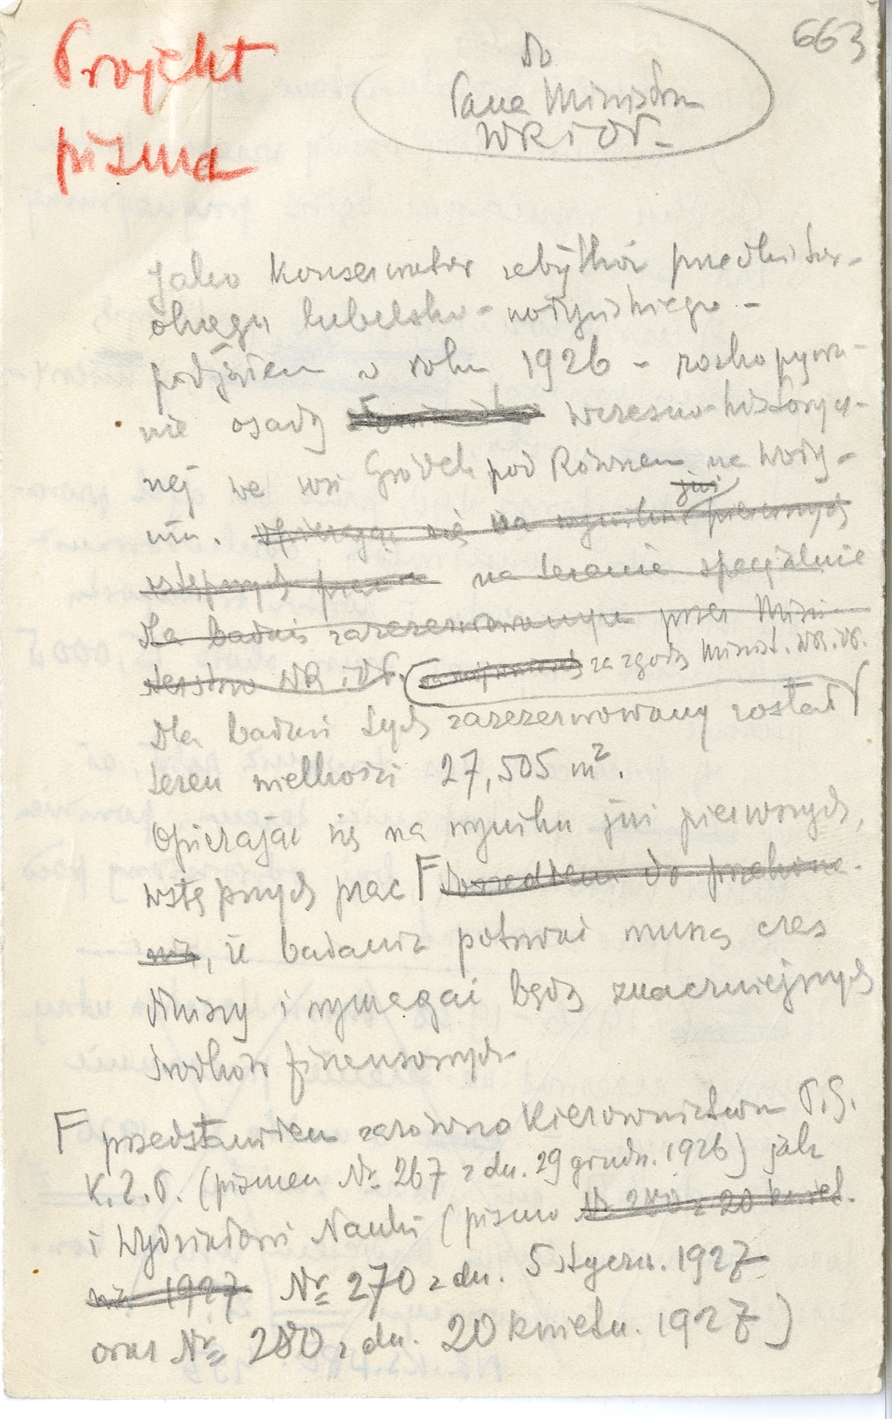 663
Projekt
pisma
Do
Pana Ministra
WR i OP.
Jako Konserwator zabytków przedhistor-
okręgu lubelsko-wołyńskiego -
podjąłem w roku 1926 - rozkopywa-
nie osady wczesno-historycz-
nej we wsi Gródek pod Równem na Woły-
niu. Opierając się na wyniku już pierwszych
wstępnych prac na terenie specjalnie
dla badań zarezerwowanym przez Mini-
sterstwo WR i OP. za zgodą Minist. WR. OP.
Dla badań tych zarezerwowany został
teren wielkości 27,505 m².
Opierając się na wyniku już pierwszych,
wstępnych prac F doszedłem do przekona-
nia, iż badania potrwać muszą czas
dłuższy i wymagać będą znaczniejszych
środków finansowych
F przedstawiłem zarówno Kierownictwu P.G.
K.Z.P. (pismem № 267 z dn. 29 grudn. 1926) jak
i Wydziałowi Nauki (pismo № 280 z 20 kwiet.
nia 1927 № 270 z dn. 5 styczn. 1927
oraz № 280 z dn. 20 kwietn. 1927)